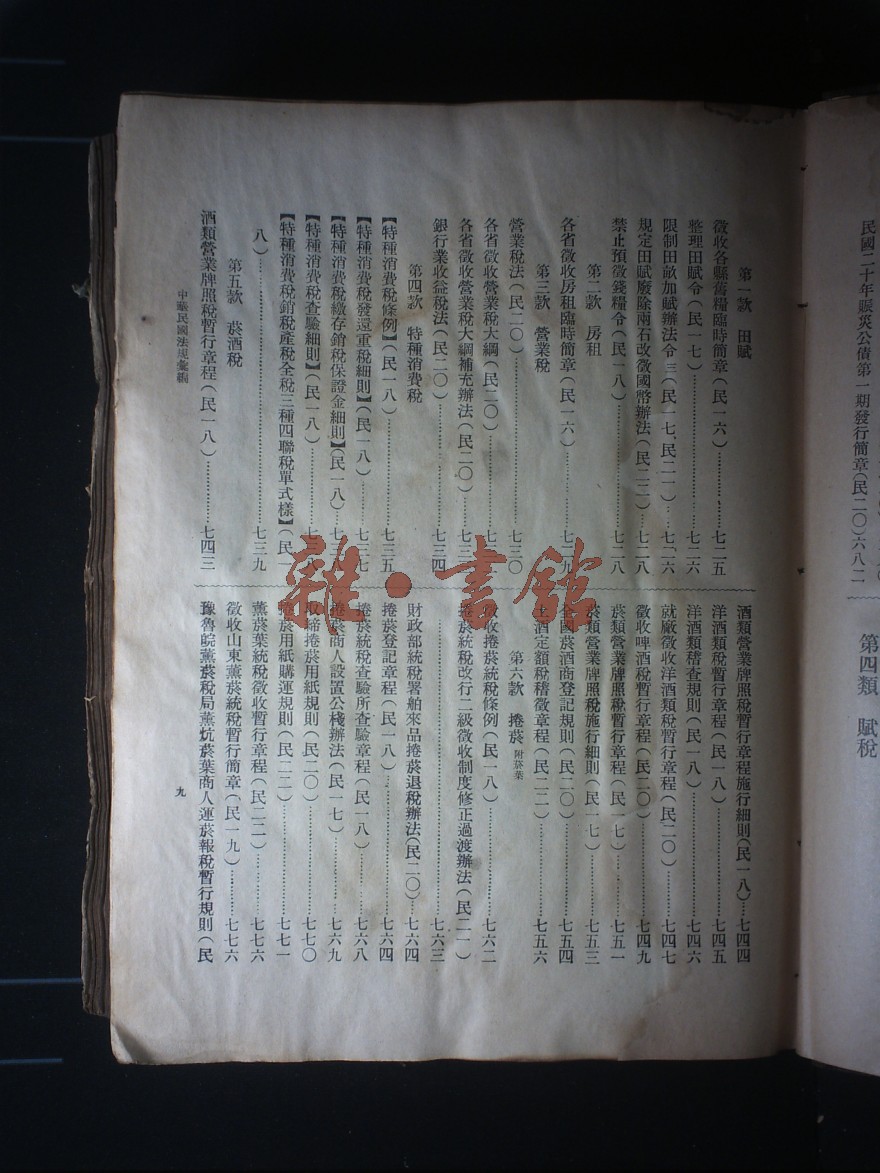 民國二十年賑災公債第一期發行簡章(民二〇)六八二
第四類 賦稅
第一款 田賦
徵收各縣舊糧臨時簡章(民一六)……七二五
整理田賦令(民一七)……七二六
限制田畝加賦辦法令三(民一七、民二一)……七二六
規定田賦廢除兩石改徵國幣辦法(民二二)……七二八
禁止預徵錢糧令(民一八)……七二八
第二款 房租
各省徵收房租臨時簡章(民一六)……七二九
第三款 營業稅
營業稅法(民二〇)……七三〇
各省徵收營業稅大綱(民二〇)……七三
各省徵收營業稅大綱補充辦法(民二〇)……七三
銀行業收益稅法(民二〇)……七三四
第四款 特種消費稅
【特種消費稅條例】(民一八)……七三五
【特種消費稅發還重稅細則】(民一八)……七三七
【特種消費稅繳存銷稅保證金細則】(民一八)……七三
【特種消費稅查驗細則】(民一八)……七三八
【特種消費稅銷稅產稅全稅三種四聯稅單式樣】(民
八)……七三九
第五款 菸酒稅
酒類營業牌照稅暫行章程(民一八)……七四三
酒類營業牌照稅暫行章程施行細則(民一八)……七四四
洋酒類稅暫行章程(民一八)……七四五
洋酒類稽查規則(民一八)……七四六
就廠徵收洋酒類稅暫行章程(民二〇)……七四七
徵收啤酒稅暫行章程(民二〇)……七四九
菸類營業牌照稅暫行章程(民一七)……七五一
菸類營業牌照稅施行細則(民一七)……七五三
全國菸酒商登記規則(民二〇)……七五四
土酒定額稅稽徵章程(民二二)……七五六
第六款 捲菸 附菸葉
徵收捲菸統稅條例(民一八)……七六二
捲菸統稅改行二級徵收制度修正過渡辦法(民二一)
……七六三
財政部統稅署舶來品捲菸退稅辦法(民二〇)……七六四
捲菸登記章程(民一八)……七六四
捲菸統稅查驗所查驗章程(民一八)……七六八
捲菸商人設置公棧辦法(民一七)……七六九
取締捲菸用紙規則(民二〇)……七七〇
捲菸用紙購運規則(民二二)……七七一
薰菸葉統稅徵收暫行章程(民二二)……七七六
徵收山東薰菸統稅暫行簡章(民一九)……七七六
豫魯皖薰菸稅局薰炕菸葉商人運菸報稅暫行規則(民
中華民國法規彙編
九
雜·書館